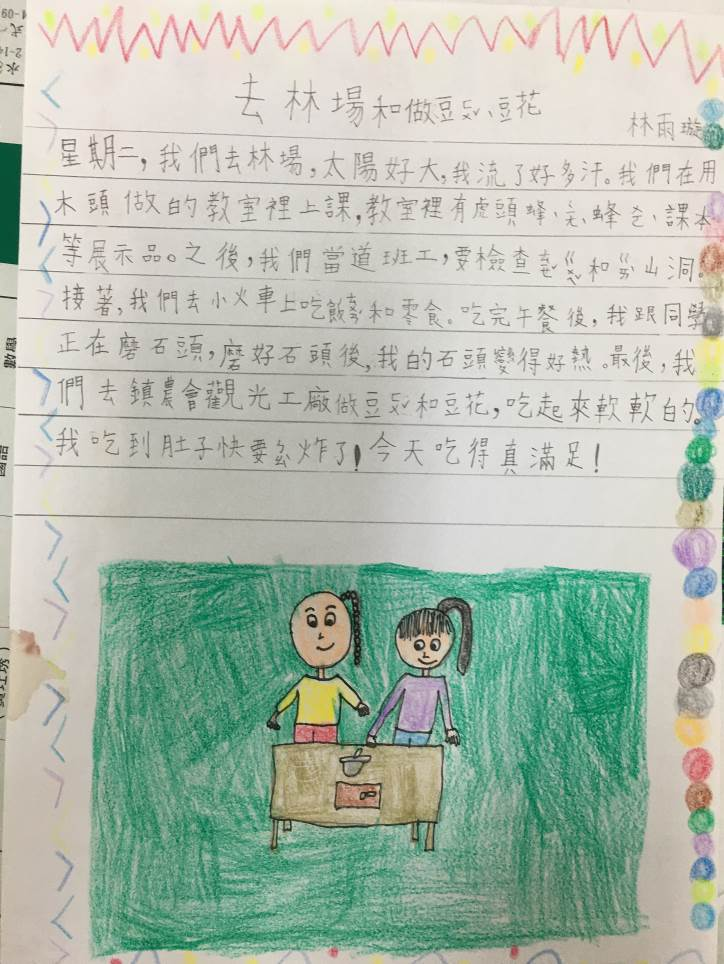 去林場和做豆ㄐㄧㄤ、豆花
林雨璇
星期二,我們去林場,太陽好大,我流了好多汗。我們在用
木頭做的教室裡上課,教室裡有虎頭蜂、蜂、課本
等展示品。之後,我們當道班工,要檢查和山洞。
接著,我們去小火車上吃飯和零食。吃完午餐後,我跟同學
正在磨石頭,磨好石頭後,我的石頭變得好熱。最後,我
們去鎮農會觀光工廠做豆ㄐㄧㄤ和豆花,吃起來軟軟的。
我吃到肚子快要炸了!今天吃得真滿足!
數學
國語